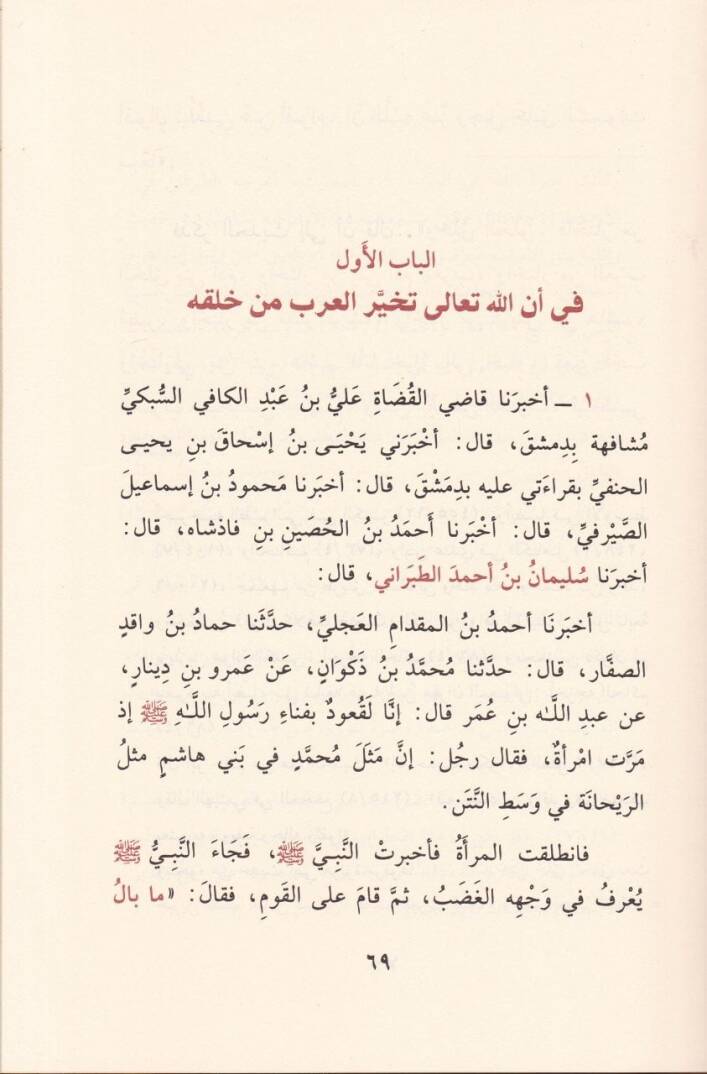 الباب الأَول
في أن الله تعالى تخيَّر العرب من خلقه
١ ــ أخبرَنا قاضي القُضَاةِ عَليُّ بنُ عَبْدِ الكافي السُّبكيِّ
مُشافهة بِدِمشقَ، قال: أخْبَرَني يَحْيَـى بنُ إسْحاقَ بنِ يحيـى
الحنفيِّ بقراءَتي عليه بدِمَشْقَ، قال: أخبَرنا مَحمودُ بنُ إسماعيلَ
الصَّيْرفيِّ، قال: أخْبَرنا أَحمَدُ بنُ الحُصَينِ بنِ فاذشاه، قال:
أخبرَنا سُليمانُ بنُ أحمدَ الطَبَراني، قال:
أخبرَنَا أحمدُ بنُ المقدامِ العَجليِّ، حدثَّنَا حمادُ بنُ واقدٍ
الصفَّار، قال: حدثَّنا مُحمَّدُ بنُ ذَكْوَانٍ، عَنْ عَمرو بنِ دِينارٍ،
عن عبدِ اللَّـٰه بنِ عُمَر قال: إنَّا لَقُعودٌ بفناءِ رَسُولِ اللَّـٰهِ ﷺ إذ
مَرَّت امْرأةٌ، فقال رجُل: إنَّ مَثَلَ مُحمَّدٍ في بَني هاشمٍ مثلُ
الرَيْحانَة في وَسَطِ النَّتَن.
فانطلقت المرأَةُ فأخبرتْ النَّبِـيَّ ﷺ، فَجَاءَ النَّبِـيُّ ﷺ
يُعْرفُ في وَجْهِه الغَضَبُ، ثمَّ قامَ على القَومِ، فقالَ: «ما بالُ
٦٩